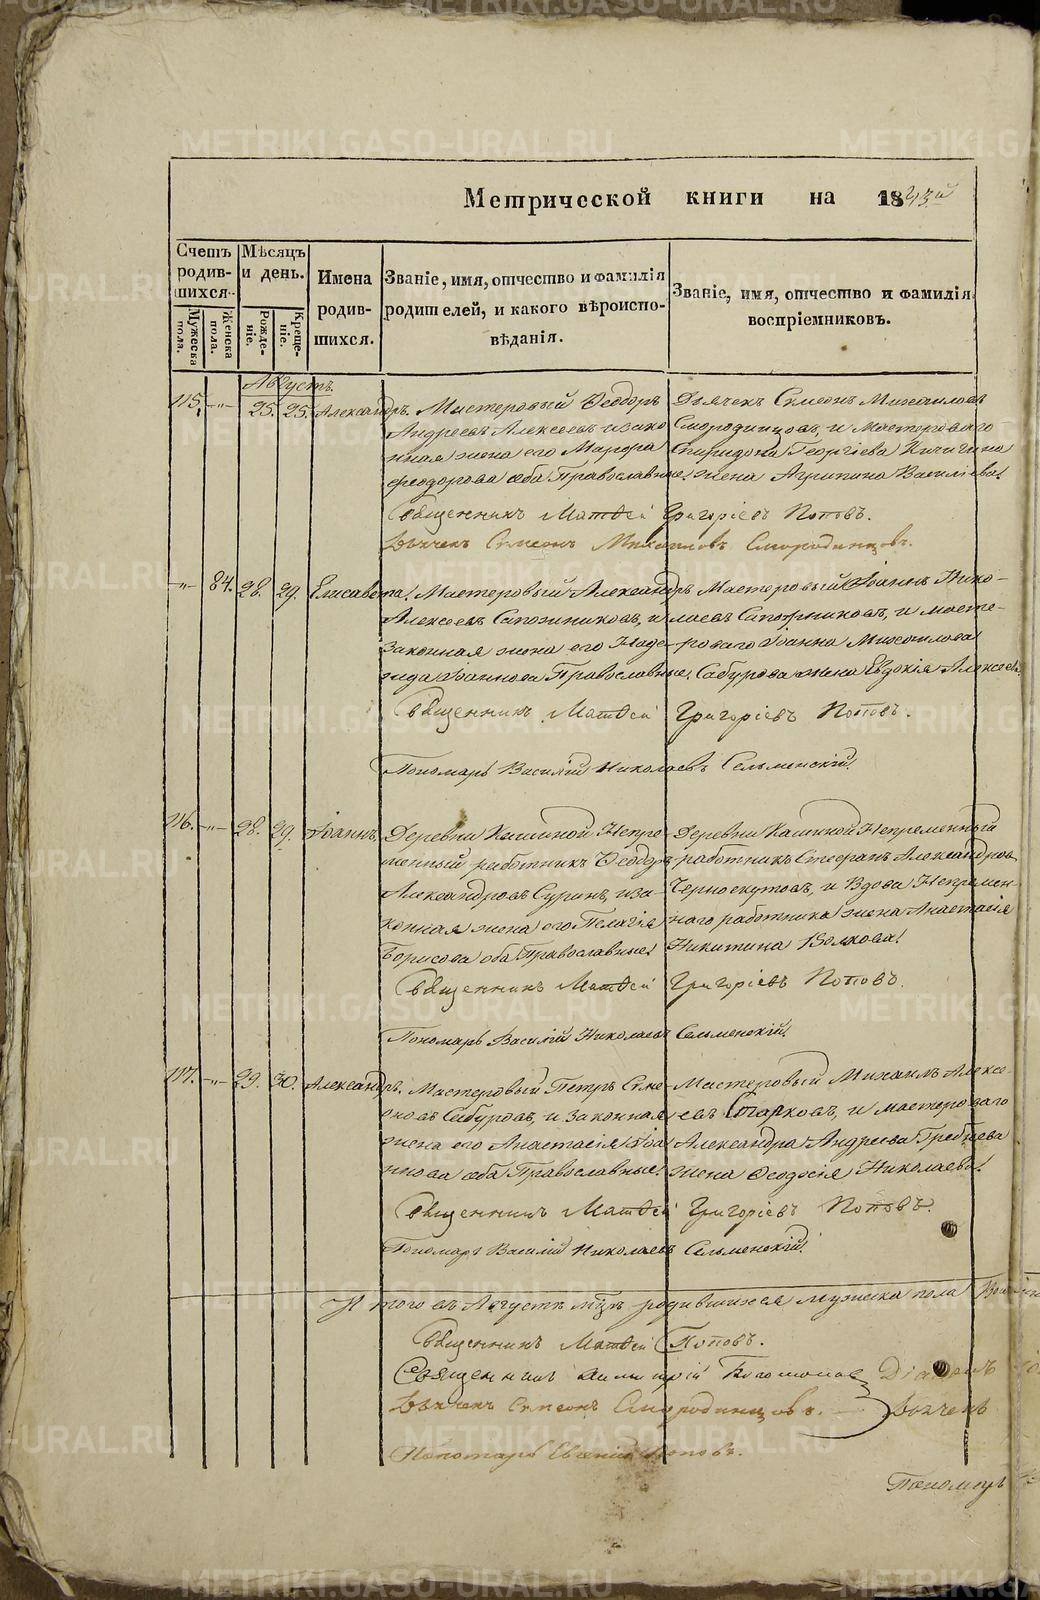 Метрической книги на 1843й
Счетъ родив-шихся.
Мѣсяцъ и день.
Имена родив-шихся.
Званіе, имя, отчество и фамилія родителей, и какого вѣроиспо-вѣданія.
Званіе, имя, отчество и фамилія воспріемниковъ.
Мужеска пола.
Женска пола.
Рожде-ніе.
Креще-ніе.
Августъ.
115. —„— 25. 25. Александръ. Мастеровый Ѳеодоръ
Андреевъ Алексеевъ и зако
нная жена его Марѳра
Феодорова оба Православные.
Дьячекъ Симеонъ Михаиловъ
Смородинцовъ, и Мастероваго
Спиридона Георгіева Кичигина
жена Агрипина Васильева.
Священникъ Матѳей Григоріевъ Поповъ.
Дьячекъ Симеонъ Михаиловъ Смородинцовъ.
—„— 84. 28. 29. Елисавета. Мастеровый Александръ
Алексеевъ Сапожниковъ, и
законная жена его Наде-
жда Іоаннова Православные.
Мастеровый Іоаннъ Нико-
лаевъ Сапожниковъ, и масте-
роваго Іоанна Михаилова
Сабурова жена Евдокія Алексеев
Священникъ Матѳей Григоріевъ Поповъ.
Пономарь Василій Николаевъ Сельменскій.
116. —„— 28. 29. Іоаннъ. Деревни Калиной Непре
менный работникъ Ѳеодоръ
Александровъ Суринъ, и за
конная жена его Пелагія
Борисова оба Православные.
Деревни Калиной Непременный
работникъ Стефанъ Александровъ
Черноскутовъ, и Вдова Непремен-
наго работника жена Анастасія
Никитина Волкова.
Священникъ Матѳей Григоріевъ Поповъ.
Пономарь Василій Николаевъ Сельменскій.
117. —„— 29. 30. Александръ. Мастеровый Петръ Симе
оновъ Сабуровъ, и законная
жена его Анастасія Іоа
ннова оба Православные.
Мастеровый Михаилъ Алексе-
евъ Старковъ, и мастероваго
Александра Андреева Гребнева
жена Ѳеодосія Николаева.
Священникъ Матѳей Григоріевъ Поповъ.
Пономарь Василій Николаевъ Сельменскій.
Итого въ Августѣ мцѣ родившихся мужеска пола
Священникъ Матѳей Поповъ.
Священникъ Димитрій
Діаконъ
Дьячекъ Симеонъ Смородинцовъ.
Дьячекъ
Пономарь Евгеній Поповъ.
Пономарь
METRIKI.GASO-URAL.RU